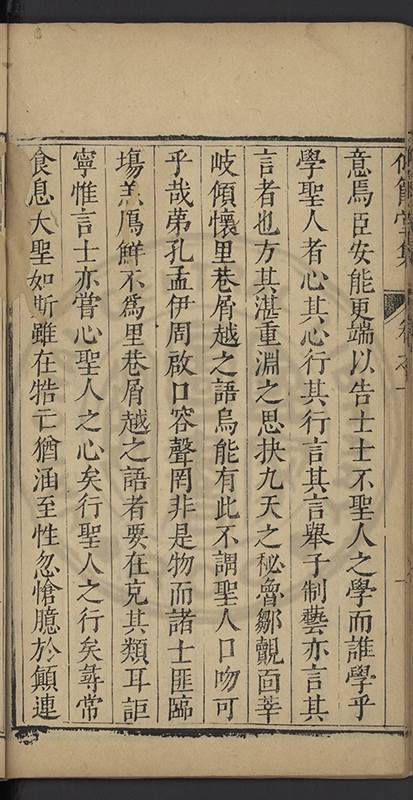 集
卷之一
意焉臣安能更端以告士士不聖人之學而誰學乎
學聖人者心其心行其行言其言舉子制藝亦言其
言者也方其湛重淵之思抉九天之秘魯鄒覿面莘
岐傾懷里巷屑越之語烏能有此不謂聖人口吻可
乎哉第孔孟伊周啟口容聲罔非是物而諸士匪臨
場羔鴈鮮不為里巷屑越之語者要在克其類耳詎
寧惟言士亦嘗心聖人之心矣行聖人之行矣尋常
食息大聖如斯雖在牿亡猶涵至性忽愴臆於顛連